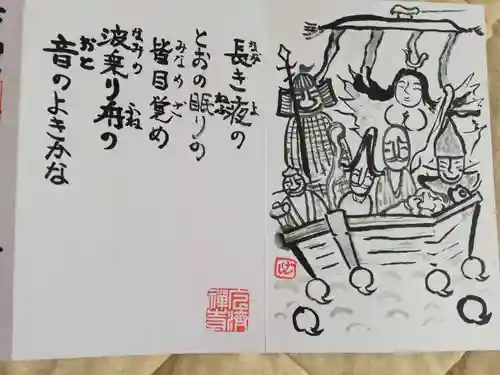 長き夜の
ながよ
とおの眠りの
ねむ
皆目覚め
みなめざ
波乗り舟の
なみのふね
音のよきかな
おと
広済
禅寺